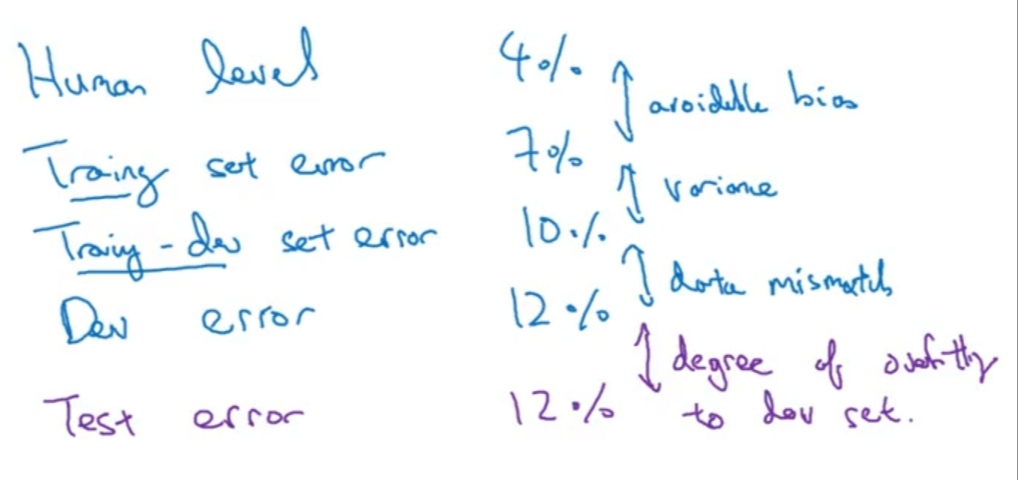 Human level 4%
avoidable bias
Training set error 7%
variance
Training-dev set error 10%
data mismatch
Dev error 12%
degree of overfitting
Test error 12% to dev set.